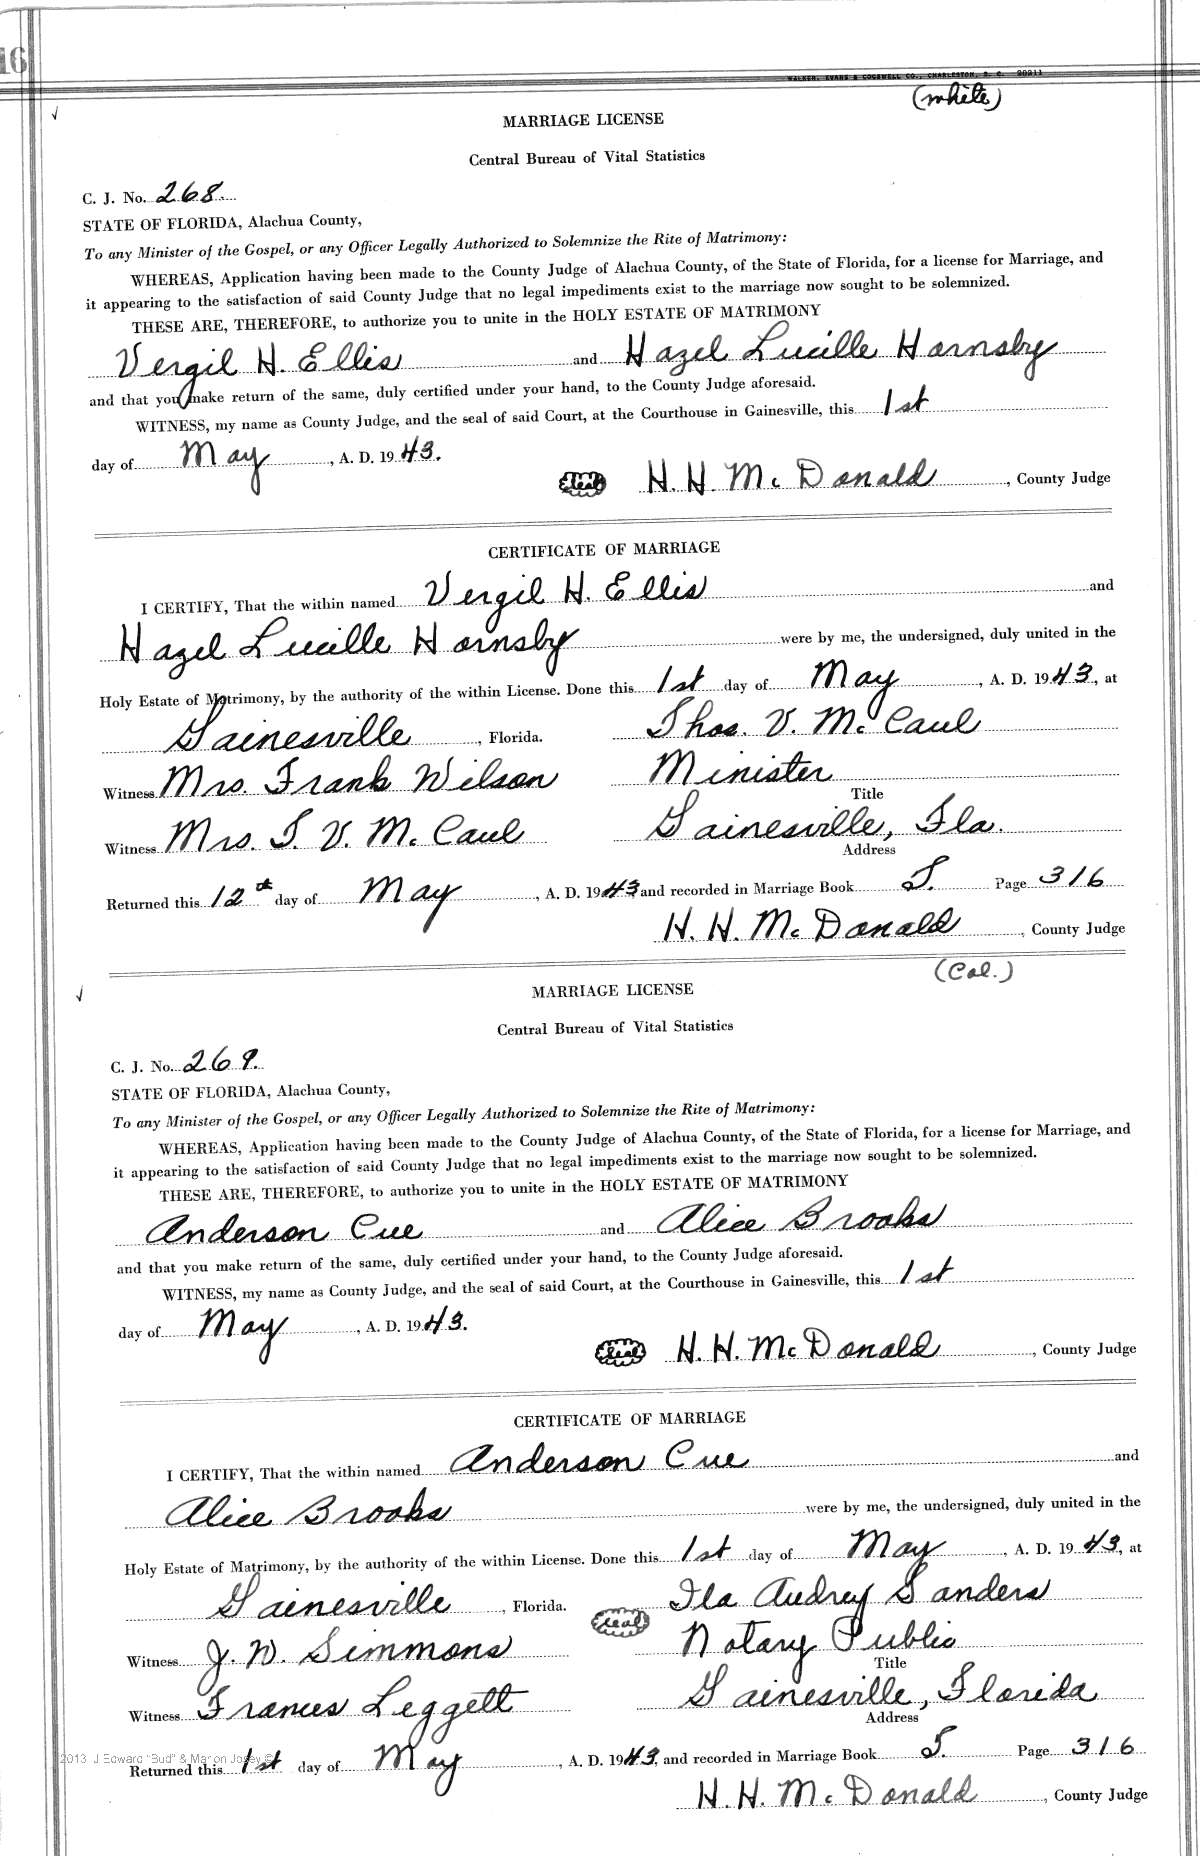 16
WALKER, EVANS & COGSWELL CO., CHARLESTON, S. C. 20211
(white)
MARRIAGE LICENSE
Central Bureau of Vital Statistics
C. J. No. 268.
STATE OF FLORIDA, Alachua County,
To any Minister of the Gospel, or any Officer Legally Authorized to Solemnize the Rite of Matrimony:
WHEREAS, Application having been made to the County Judge of Alachua County, of the State of Florida, for a license for Marriage, and
it appearing to the satisfaction of said County Judge that no legal impediments exist to the marriage now sought to be solemnized.
THESE ARE, THEREFORE, to authorize you to unite in the HOLY ESTATE OF MATRIMONY
Vergil H. Ellis and Hazel Lucille Hornsby
and that you make return of the same, duly certified under your hand, to the County Judge aforesaid.
WITNESS, my name as County Judge, and the seal of said Court, at the Courthouse in Gainesville, this 1st
day of May, A. D. 1943.
seal H. H. McDonald, County Judge
CERTIFICATE OF MARRIAGE
I CERTIFY, That the within named Vergil H. Ellis and
Hazel Lucille Hornsby were by me, the undersigned, duly united in the
Holy Estate of Matrimony, by the authority of the within License. Done this 1st day of May, A. D. 1943, at
Gainesville, Florida. Thos. V. McCaul
Witness Mrs. Frank Wilson Minister
Title
Witness Mrs. T. V. McCaul Gainesville, Fla.
Address
Returned this 12th day of May, A. D. 1943 and recorded in Marriage Book T. Page 316
H. H. McDonald, County Judge
(Col.)
MARRIAGE LICENSE
Central Bureau of Vital Statistics
C. J. No. 269.
STATE OF FLORIDA, Alachua County,
To any Minister of the Gospel, or any Officer Legally Authorized to Solemnize the Rite of Matrimony:
WHEREAS, Application having been made to the County Judge of Alachua County, of the State of Florida, for a license for Marriage, and
it appearing to the satisfaction of said County Judge that no legal impediments exist to the marriage now sought to be solemnized.
THESE ARE, THEREFORE, to authorize you to unite in the HOLY ESTATE OF MATRIMONY
Anderson Cue and Alice Brooks
and that you make return of the same, duly certified under your hand, to the County Judge aforesaid.
WITNESS, my name as County Judge, and the seal of said Court, at the Courthouse in Gainesville, this 1st
day of May, A. D. 1943.
seal H. H. McDonald, County Judge
CERTIFICATE OF MARRIAGE
I CERTIFY, That the within named Anderson Cue and
Alice Brooks were by me, the undersigned, duly united in the
Holy Estate of Matrimony, by the authority of the within License. Done this 1st day of May, A. D. 1943, at
Gainesville, Florida. seal Ila Audrey Sanders
Witness J. W. Simmons Notary Public
Title
Witness Frances Leggett Gainesville, Florida
Address
2013 J Edward "Bud" & Marion Josey ©
Returned this 1st day of May, A. D. 1943, and recorded in Marriage Book T. Page 316
H. H. McDonald, County Judge